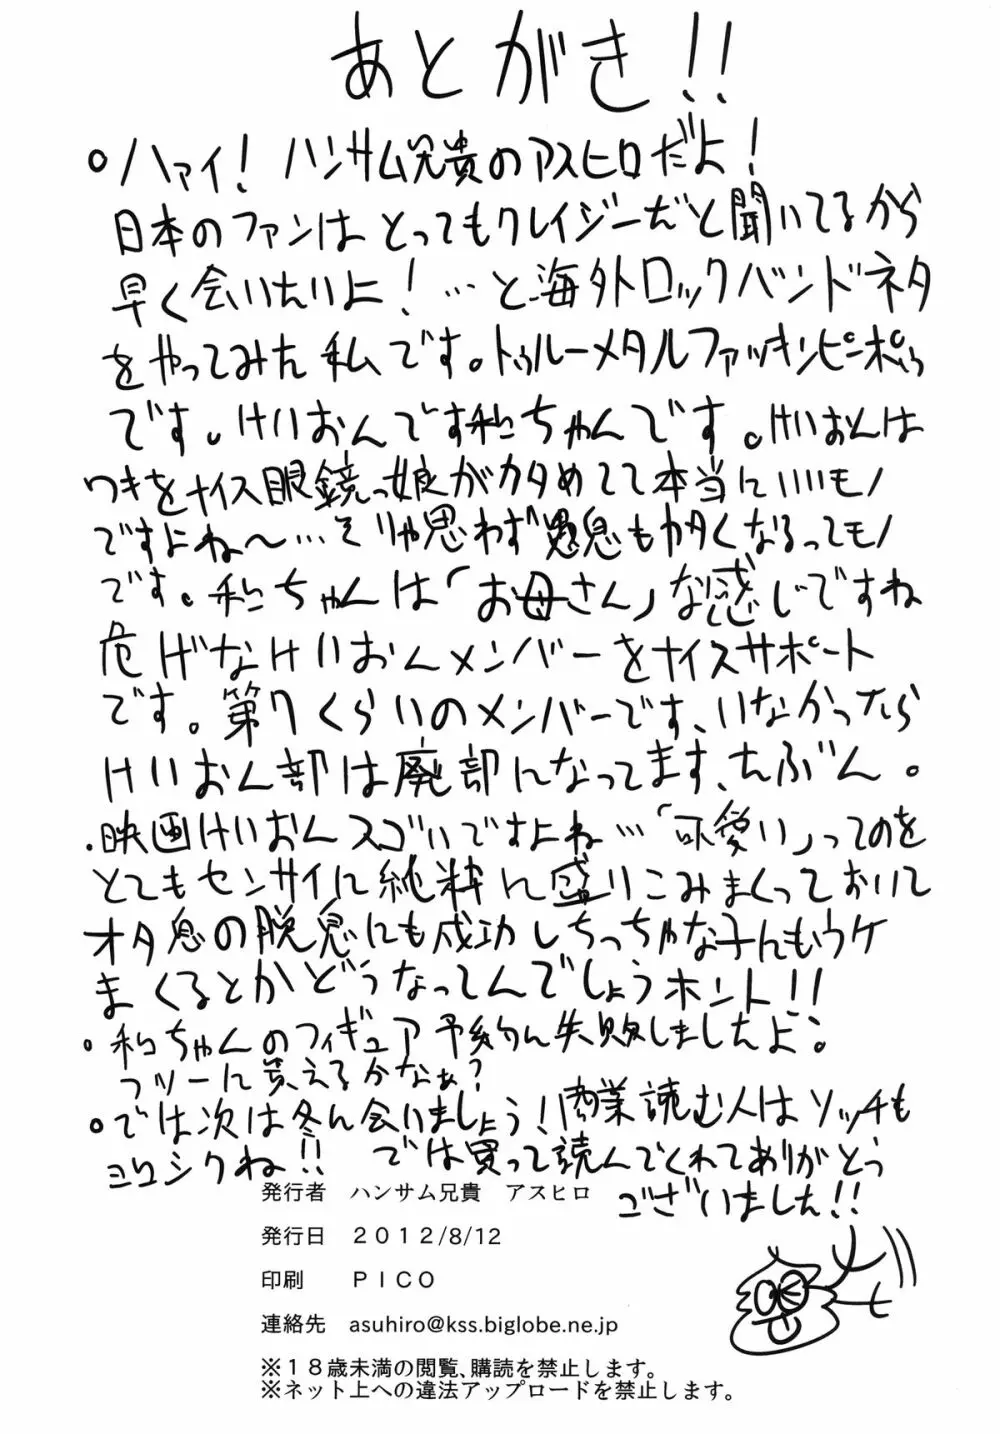 あとがき!!
ハァイ! ハンサム兄貴のアスヒロだよ!
日本のファンはとってもクレイジーだと聞いてるから
早く会いたいよ!…と海外ロックバンドネタ
をやってみた私です。トゥルーメタルファッキンピーポゥ
です。けいおんです和ちゃんです。けいおんは
ワキをナイス眼鏡っ娘がカタめてて本当にいいモノ
ですよね〜…そりゃ思わず愚息も力多くなるってモノ
です。和ちゃんは「お母さん」な感じですね
危げなけいおんメンバーをナイスサポート
です。第7くらいのメンバーです、いなかったら
けいおん部は廃部になってます、たぶん。
・映画けいおんスゴいですよね…「可愛い」ってのを
とてもセンサイに純粋に盛りこみまくっておいて
オタ息の脱息にも成功しちっちゃな子にもウケ
まくるとかどうなってんでしょうホント!!
。和ちゃんのフィギュア予約に失敗しましたよ。
フツーに買えるかなぁ?
。では次は冬に会いましょう!商業読む人はソッチも
ヨロシクね!! では買って読んでくれてありがとう
ございました!!
発行者 ハンサム兄貴 アスヒロ
発行日 2012/8/12
印刷 PICO
連絡先 asuhiro@kss.biglobe.ne.jp
※18歳未満の閲覧、購読を禁止します。
※ネット上への違法アップロードを禁止します。